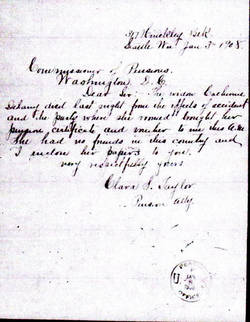 Hinckley Blk
Seattle Wn Jan 3rd 1908.
Commissioner of Pensions,
Washington, D.C.
Dear Sir: The widow Catherine
died last night from the effects of accident
and the party where she roomed brought her
pension certificate and voucher to me this A.M.
She had no friends in this country and
I enclose her papers to you.
Very respectfully yours
Clara S. Taylor
Pension Atty.
U.S.